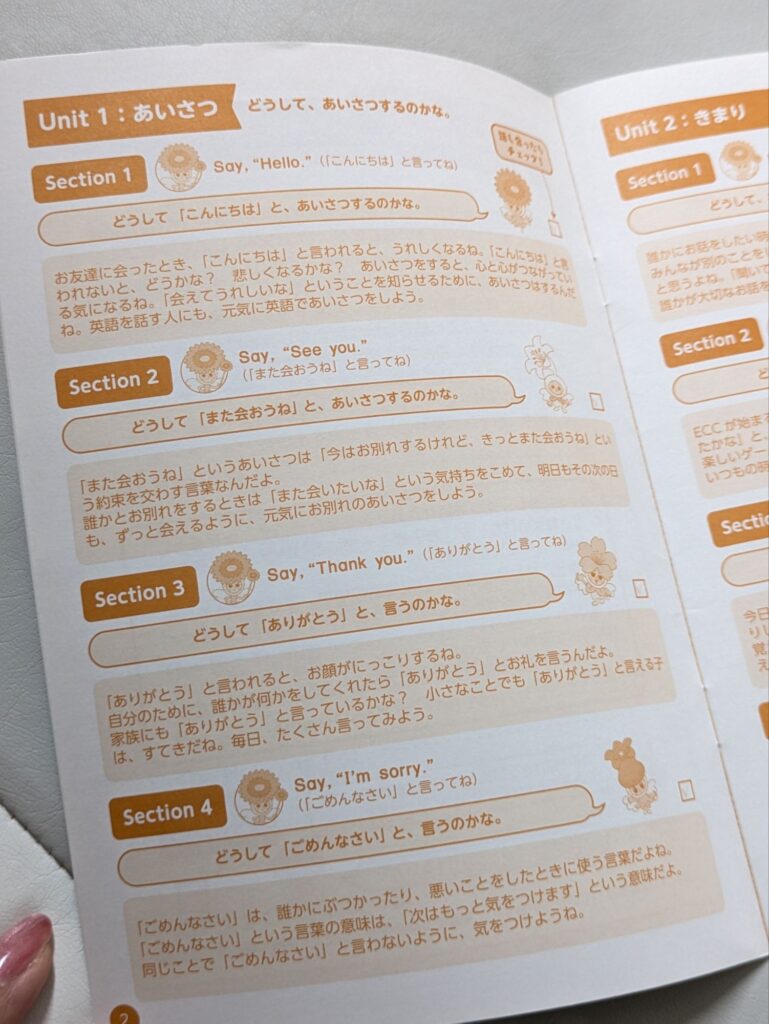 Unit 1：あいさつ
どうして、あいさつするのかな。
読み合ったら
チェック！
Section 1
Say, “Hello.”（「こんにちは」と言ってね）
どうして「こんにちは」と、あいさつするのかな。
お友達に会ったとき、「こんにちは」と言われると、うれしくなるね。「こんにちは」と言
われないと、どうかな？　悲しくなるかな？　あいさつをすると、心と心がつながってい
る気になるね。「会えてうれしいな」ということを知らせるために、あいさつはするんだ
ね。英語を話す人にも、元気に英語であいさつをしよう。
Section 2
Say, “See you.”
（「また会おうね」と言ってね）
どうして「また会おうね」と、あいさつするのかな。
「また会おうね」というあいさつは「今はお別れするけれど、きっとまた会おうね」とい
う約束を交わす言葉なんだよ。
誰かとお別れをするときは「また会いたいな」という気持ちをこめて、明日もその次の日
も、ずっと会えるように、元気にお別れのあいさつをしよう。
Section 3
Say, “Thank you.”（「ありがとう」と言ってね）
どうして「ありがとう」と、言うのかな。
「ありがとう」と言われると、お顔がにっこりするね。
自分のために、誰かが何かをしてくれたら「ありがとう」とお礼を言うんだよ。
家族にも「ありがとう」と言っているかな？　小さなことでも「ありがとう」と言える子
は、すてきだね。毎日、たくさん言ってみよう。
Section 4
Say, “I’m sorry.”
（「ごめんなさい」と言ってね）
どうして「ごめんなさい」と、言うのかな。
「ごめんなさい」は、誰かにぶつかったり、悪いことをしたときに使う言葉だよね。
「ごめんなさい」という言葉の意味は、「次はもっと気をつけます」という意味だよ。
同じことで「ごめんなさい」と言わないように、気をつけようね。
2
Unit 2：きまり
Section 1
どうして、
誰かにお話をしたい時
みんなが別のことをし
と思うよね。「聞いて
誰かが大切なお話を
Section 2
ECCが始まる
たかな」と、
楽しいゲー
いつもの時
Sectio
今日
りし
覚
え